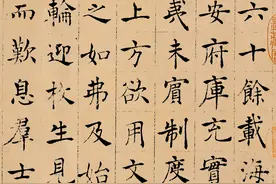 六十餘載海
安府庫充實
夷未賓制度
上方欲用文
之如弗及始
輪迎枚生見
而歎息羣士